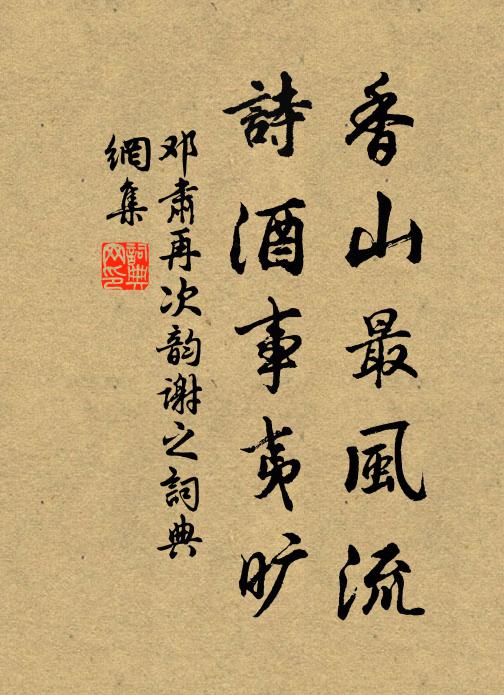 香山最風流
詩酒事夷旷
邓肅再次韵谢之詞典
網集
詞典
网印